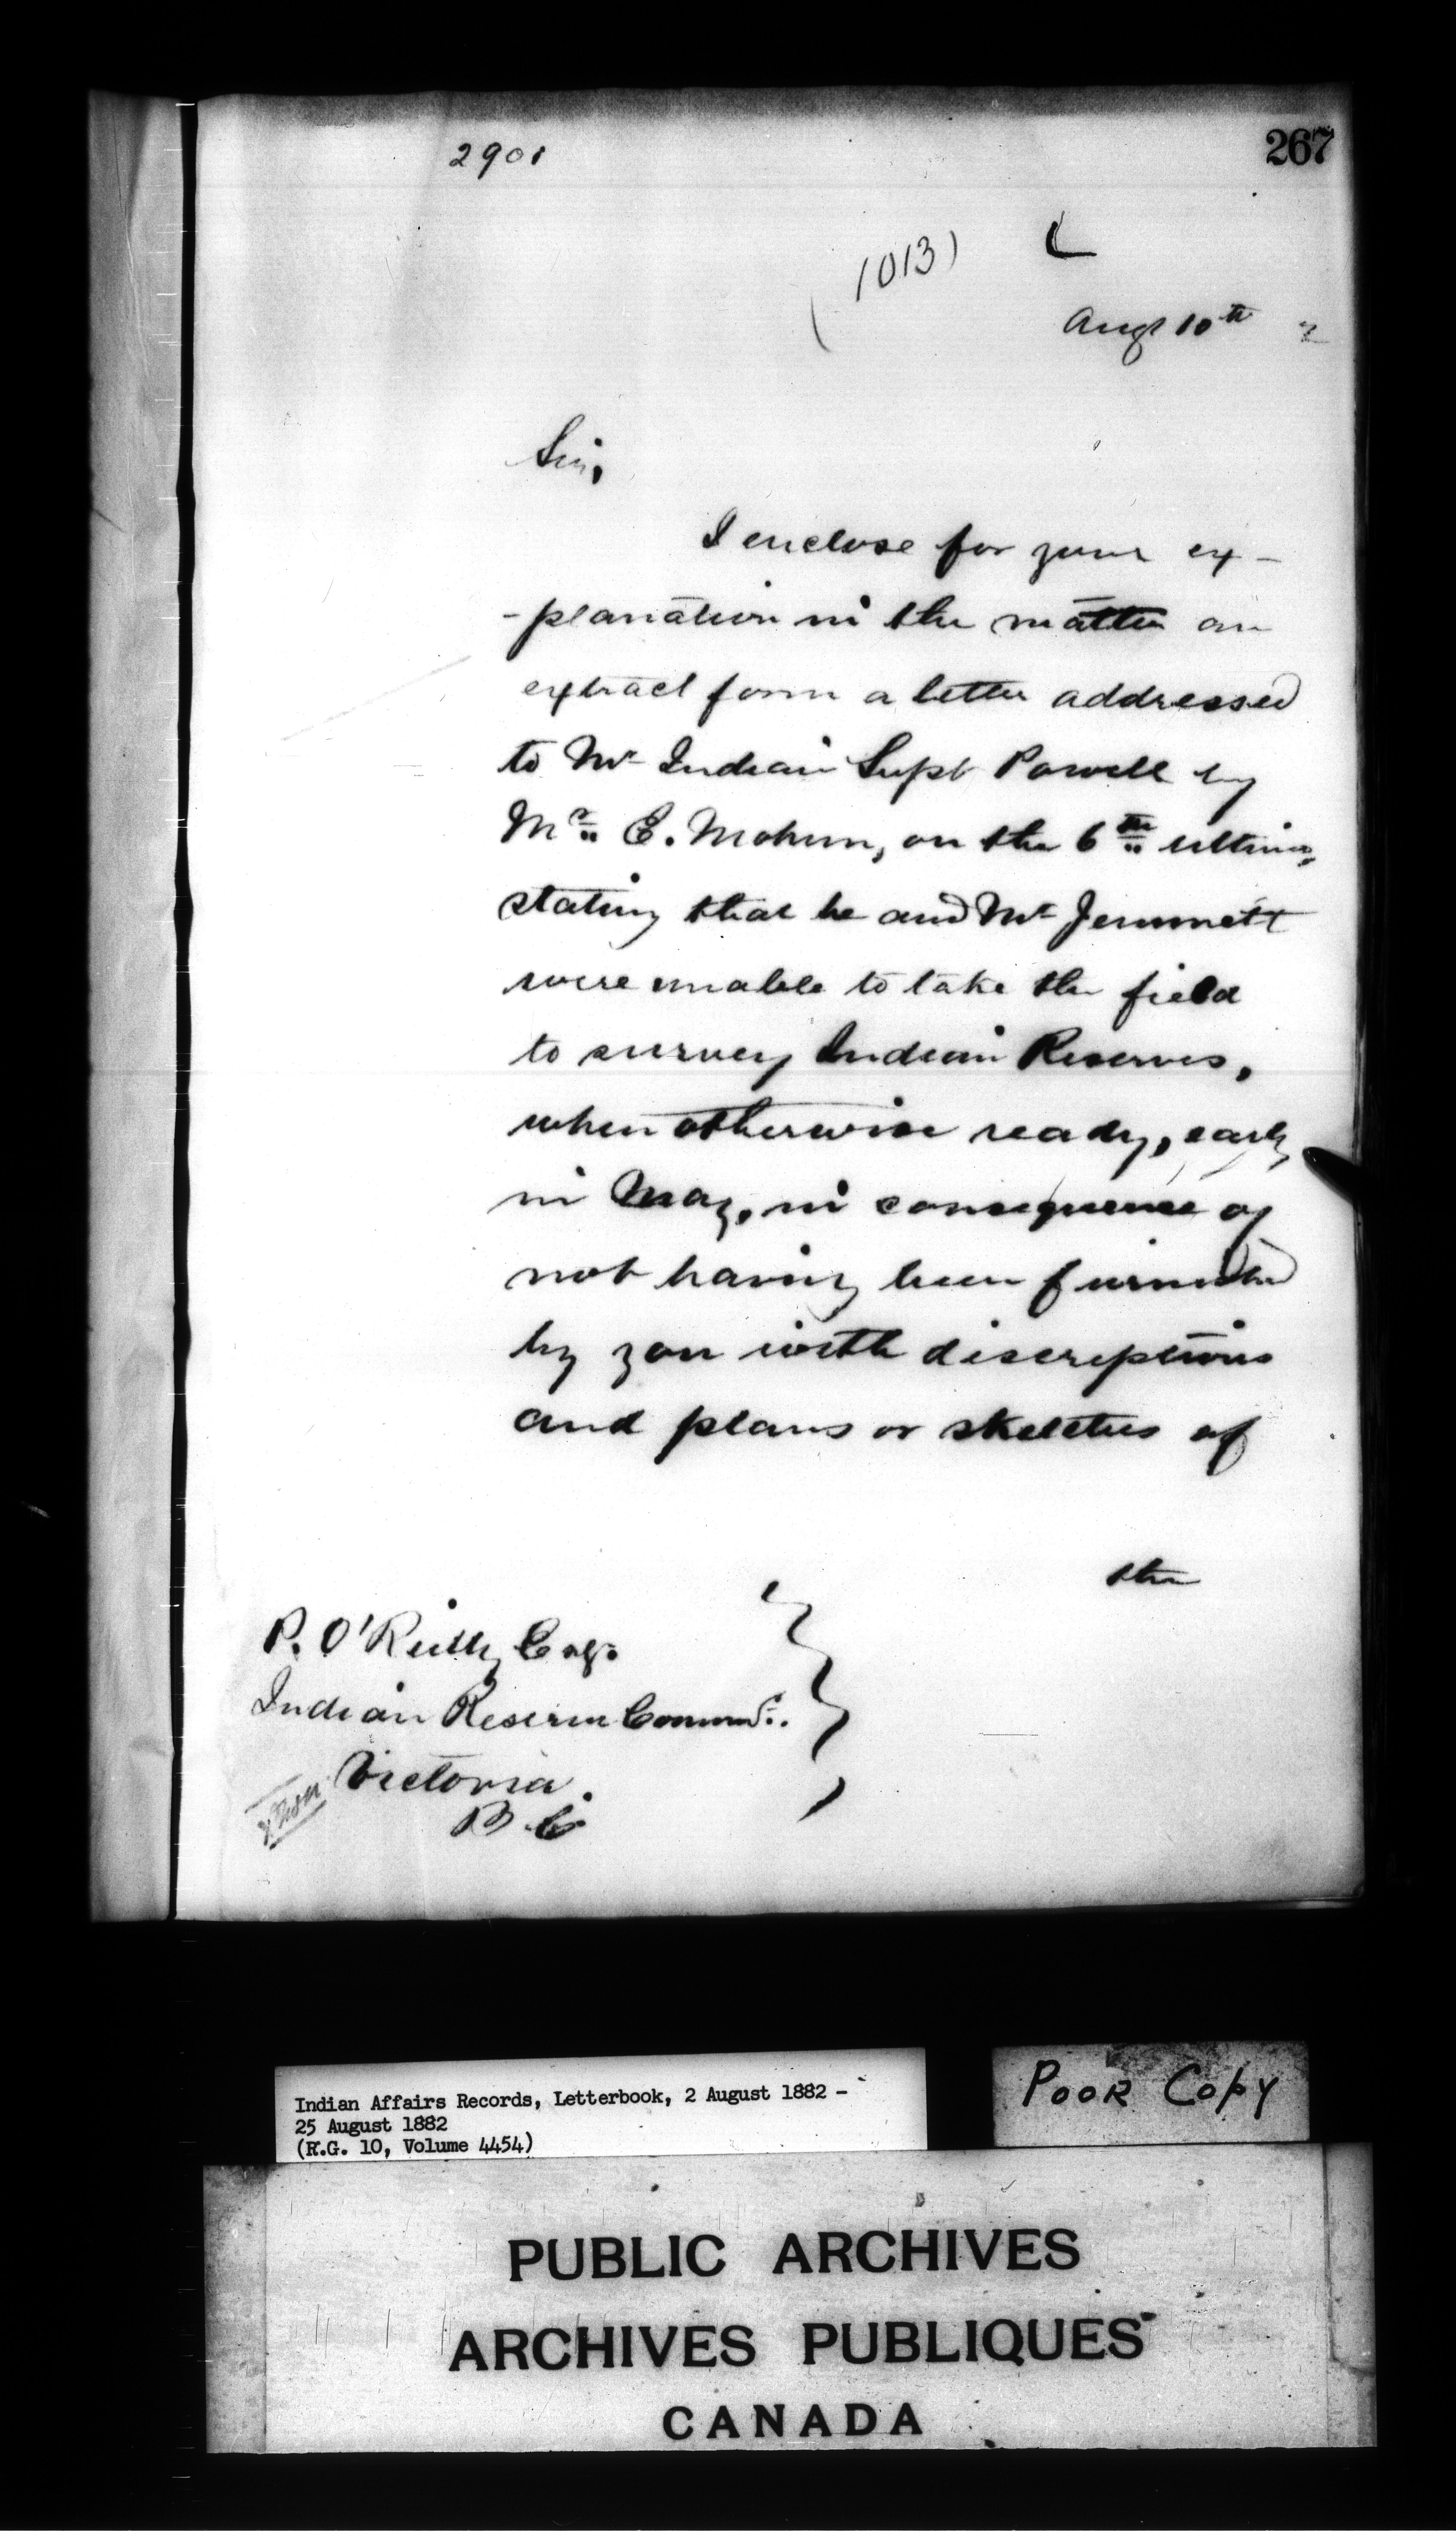 2901
267
(1013)
L
Augt 10th 2
Sir,
I enclose for your ex-
-planation in the matter an
extract form a letter addressed
to Mr Indian Supt Powell by
Mr. E. Mohun, on the 6th ultimo,
stating that he and Mr Jemmett
were unable to take the field
to survey Indian Reserves,
when otherwise ready, early
in May, in consequence of
not having been furnished
by you with discriptions
and plans or sketches of
the
P. O'Reilly Esq.
Indian Reserve Commr.
Victoria.
B.C
Indian Affairs Records, Letterbook, 2 August 1882 -
25 August 1882
(R.G. 10, Volume 4454)
POOR COPY
PUBLIC ARCHIVES
ARCHIVES PUBLIQUES
CANADA